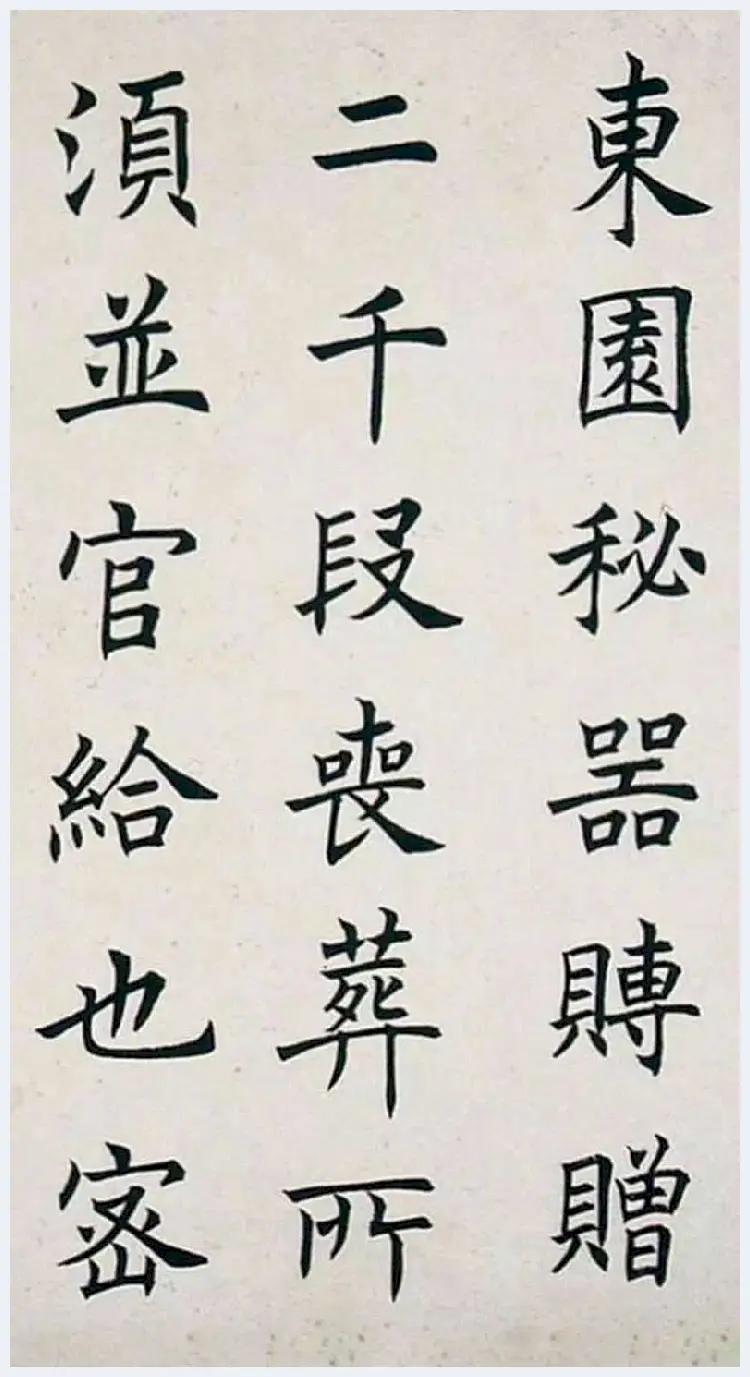 東園秘器賻贈
二千段喪葬所
湏並官給也宻